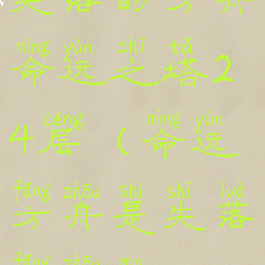 mìng yùn zhī tǎ
命运之塔2
céng mìng yùn
4层（命运
fāng zhōu shì shī luò
方舟是失落